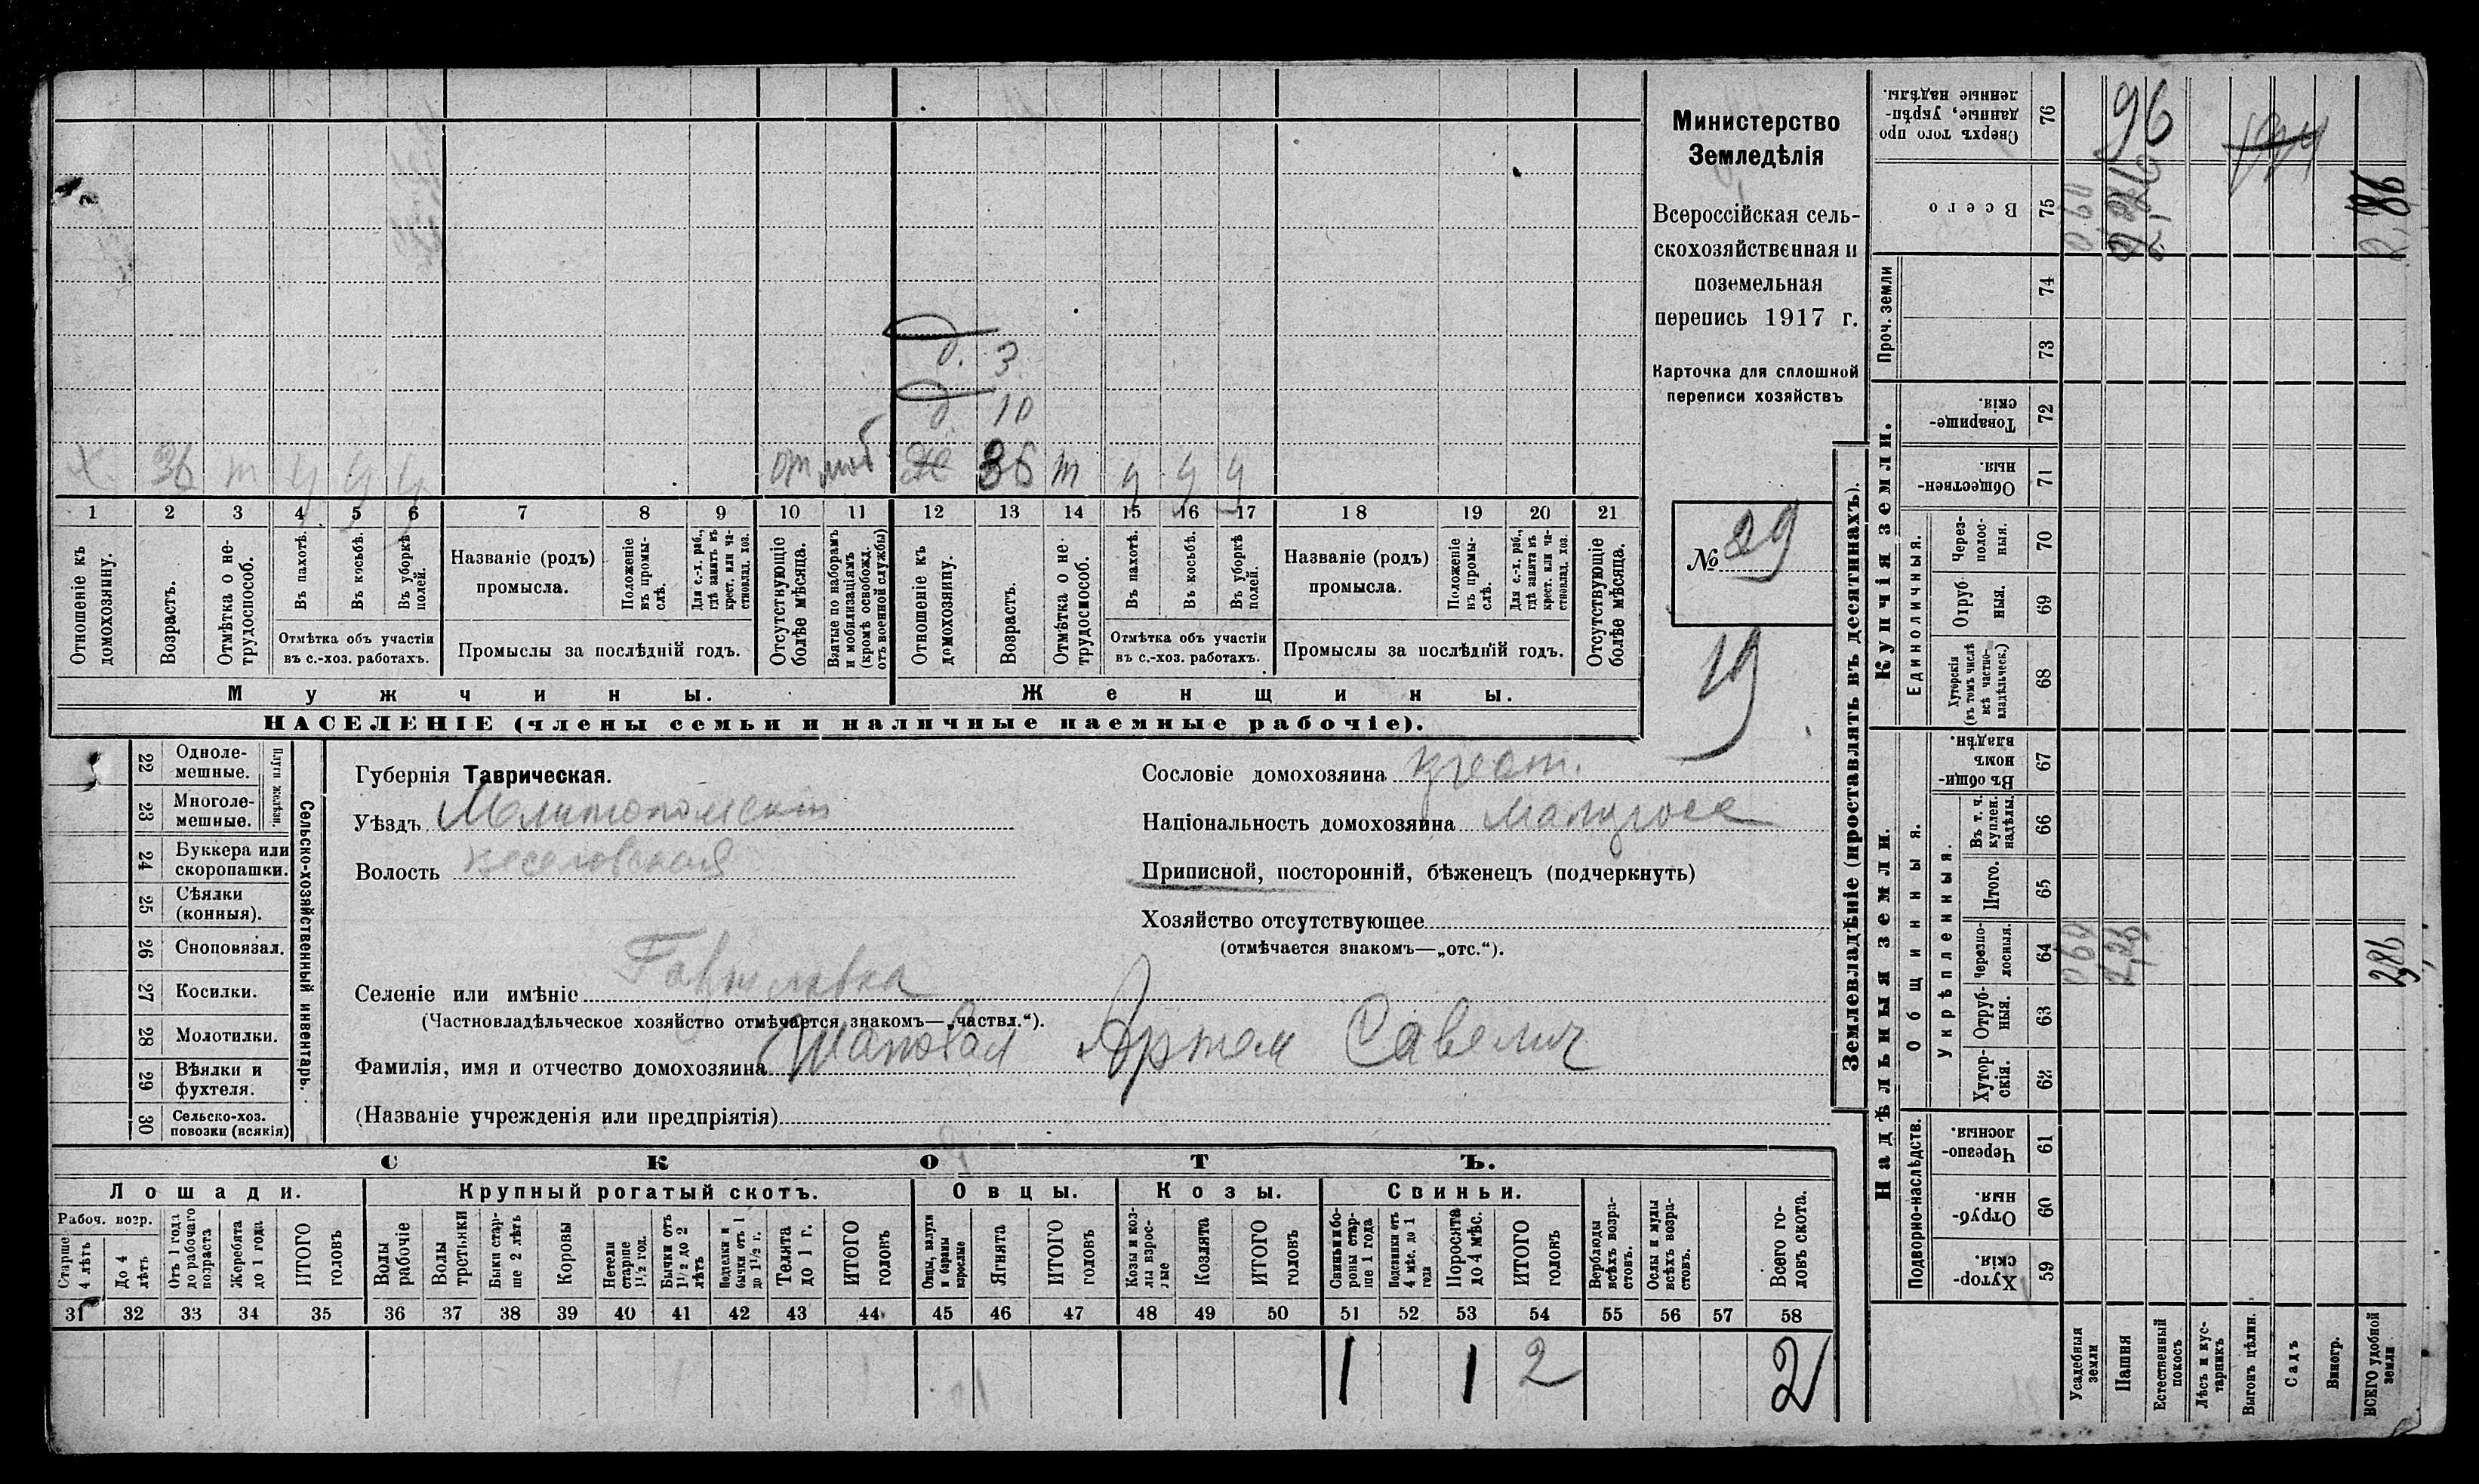 Министерство
Земледѣлія
Всероссійская сель-
скохозяйственная и
поземельная
перепись 1917 г.
Карточка для сплошной
переписи хозяйствъ
№ 29
19
д. 3
д 10
х 36 т ч ч ч от моб ж 36 т ч ч ч
1 2 3 4 5 6 7 8 9 10 11 12 13 14 15 16 17 18 19 20 21
Отношеніе къ домохозяину.
Возрастъ.
Отмѣтка о не-трудоспособ.
Въ пахотѣ.
Въ косьбѣ.
Въ уборкѣ полей.
Отмѣтка объ участіи
въ с.-хоз. работахъ.
Названіе (родъ)
промысла.
Положеніе въ промы-слѣ.
Для с.-х. раб., гдѣ занятъ въ крест. или ча-стновлад. хоз.
Промыслы за послѣдній годъ.
Отсутствующіе болѣе мѣсяца.
Взятые по наборамъ и мобилизаціямъ (кромѣ освобожд. отъ военной службы)
Отношеніе къ домохозяину.
Возрастъ.
Отмѣтка о не-трудоспособ.
Въ пахотѣ.
Въ косьбѣ.
Въ уборкѣ полей.
Отмѣтка объ участіи
въ с.-хоз. работахъ.
Названіе (родъ)
промысла.
Положеніе въ промы-слѣ.
Для с.-х. раб., гдѣ занята въ крест. или ча-стновлад. хоз.
Промыслы за послѣдній годъ.
Отсутствующіе болѣе мѣсяца.
Мужчины.
Женщины.
НАСЕЛЕНІЕ (члены семьи и наличные наемные рабочіе).
Сельско-хозяйственный инвентарь.
Плуги желѣзн.
22 Одноле-мешные.
23 Многоле-мешные.
24 Буккера или скоропашки.
25 Сѣялки (конныя).
26 Сноповязал.
27 Косилки.
28 Молотилки.
29 Вѣялки и фухтеля.
30 Сельско-хоз. повозки (всякія)
Губернія Таврическая.
Уѣздъ Мелитопольскій
Волость
Селеніе или имѣніе Гавриловка
(Частновладѣльческое хозяйство отмѣчается знакомъ—„частвл.“).
Фамилія, имя и отчество домохозяина Шаповал Артем Савелич
(Названіе учрежденія или предпріятія)
Сословіе домохозяина крест.
Національность домохозяина малоросс
Приписной, посторонній, бѣженецъ (подчеркнуть)
Хозяйство отсутствующее
(отмѣчается знакомъ—„отс.“).
СКОТЪ.
Лошади.
Крупный рогатый скотъ.
Овцы.
Козы.
Свиньи.
Рабоч. возр.
Старше 4 лѣтъ
До 4 лѣтъ
Отъ 1 года до рабочаго возраста
Жеребята до 1 года
ИТОГО головъ
Волы рабочіе
Волы третьяки
Быки стар-ше 2 лѣтъ
Коровы
Нетели старше 1½ год.
Бычки отъ 1½ до 2 лѣтъ
Подтелки и бычки отъ 1 до 1½ г.
Телята до 1 г.
ИТОГО головъ
Овцы, валухи и бараны взрослые
Ягнята
ИТОГО головъ
Козы и коз-лы взрос-лые
Козлята
ИТОГО головъ
Свиньи и бо-ровы стар-ше 1 года
Подсвинки отъ 4 мѣс. до 1 года
Поросята до 4 мѣс.
ИТОГО головъ
Верблюды всѣхъ возра-стовъ.
Ослы и мулы всѣхъ возра-стовъ.
Всего го-ловъ скота.
31 32 33 34 35 36 37 38 39 40 41 42 43 44 45 46 47 48 49 50 51 52 53 54 55 56 57 58
1 1 2 2
Землевладѣніе (проставлять въ десятинахъ).
Надѣльныя земли.
Купчія земли.
Проч. земли
Сверхъ того про
данные, укрѣп-
ленные надѣлы.
76
96
Всего
75
0,60
2,86
74
73
Товарище-скія.
72
Обществен-ныя.
71
Единоличныя.
Через-полос-ныя.
70
Отруб-ныя.
69
Хуторскія (въ томъ числѣ всѣ частно-владѣльческ.)
68
Общинныя.
Въ общи-номъ владѣн.
67
Укрѣпленныя.
Въ т. ч. куплен. надѣлы.
66
Итого.
65
Черезпо-лосныя.
64
0,60
2,26
2,86
Отруб-ныя.
63
Хутор-скія.
62
Подворно-наслѣдств.
Черезпо-лосныя.
61
Отруб-ныя.
60
Хутор-скія.
59
Усадебныя земли
Пашня
Естественный покосъ
Лѣсъ и кус-тарникъ
Выгонъ цѣлин.
Садъ
Виногр.
ВСЕГО удобной земли